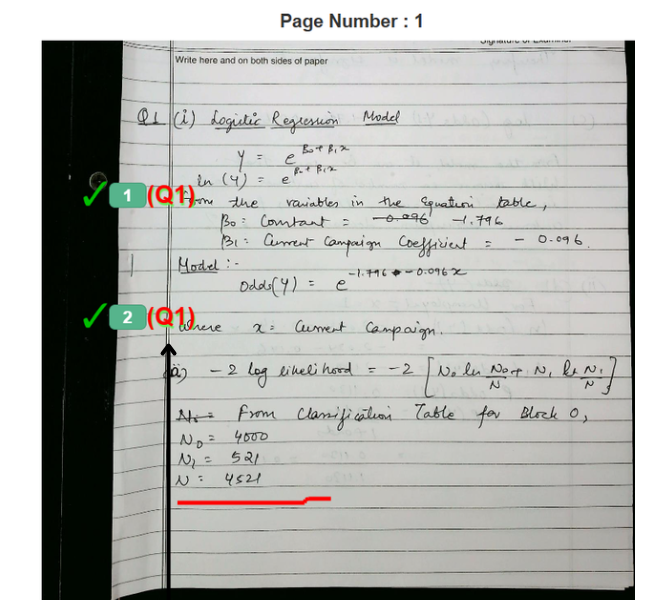 Page Number : 1
Write here and on both sides of paper
Q1 (i) Logistic Regression Model
Y = e^{β₀ + β₁x}
ln (Y) = e^{β₀ + β₁x}
1 (Q1) From the variables in the Equation table,
β₀ : Constant = -0.096 -1.796
β₁ : Current Campaign Coefficient = - 0.096.
Model :-
odds(Y) = e^{-1.796 - 0.096x}
2 (Q1)
Where x = Current Campaign.
ii) - 2 log likelihood = -2 [N₀ ln N₀/N + N₁ ln N₁/N]
N₁ = From Classification Table for Block 0,
N₀ = 4000
N₁ = 521
N = 4521